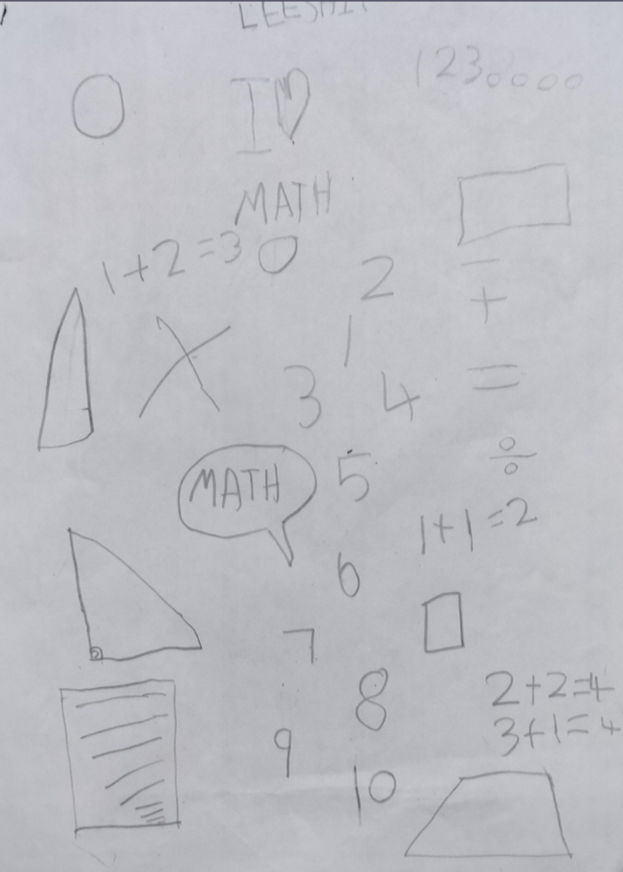 I♡
123....
MATH
1+2=3
0
2
-
+
1
3
4
=
×
MATH
5
÷
1+1=2
6
7
8
2+2=4
3+1=4
9
10